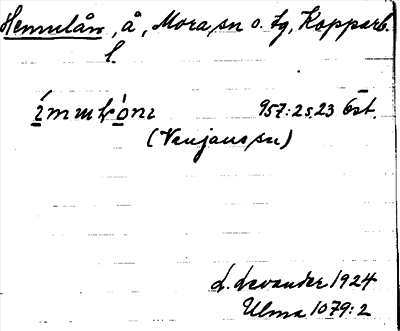 Hemulån, å, Mora sn o. tg, Kopparb.
l.
957:2s.23 Öst.
(Venjans sn)
L. Levander 1924
Ulma 1079:2